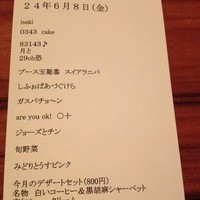 24年6月8日(金)
isaki
0343 cake
83143♪
月と
29oh恐
ブース玉蜀黍 スイアラニバ
しふぉぱあづけくら
ガスパチョ〜ン
are you ok! 〇十
ジョーズとチン
旬野菜
みどりとうすピンク
今月のデザートセット(800円)
名物 白いコーヒー&黒胡麻シャーベット